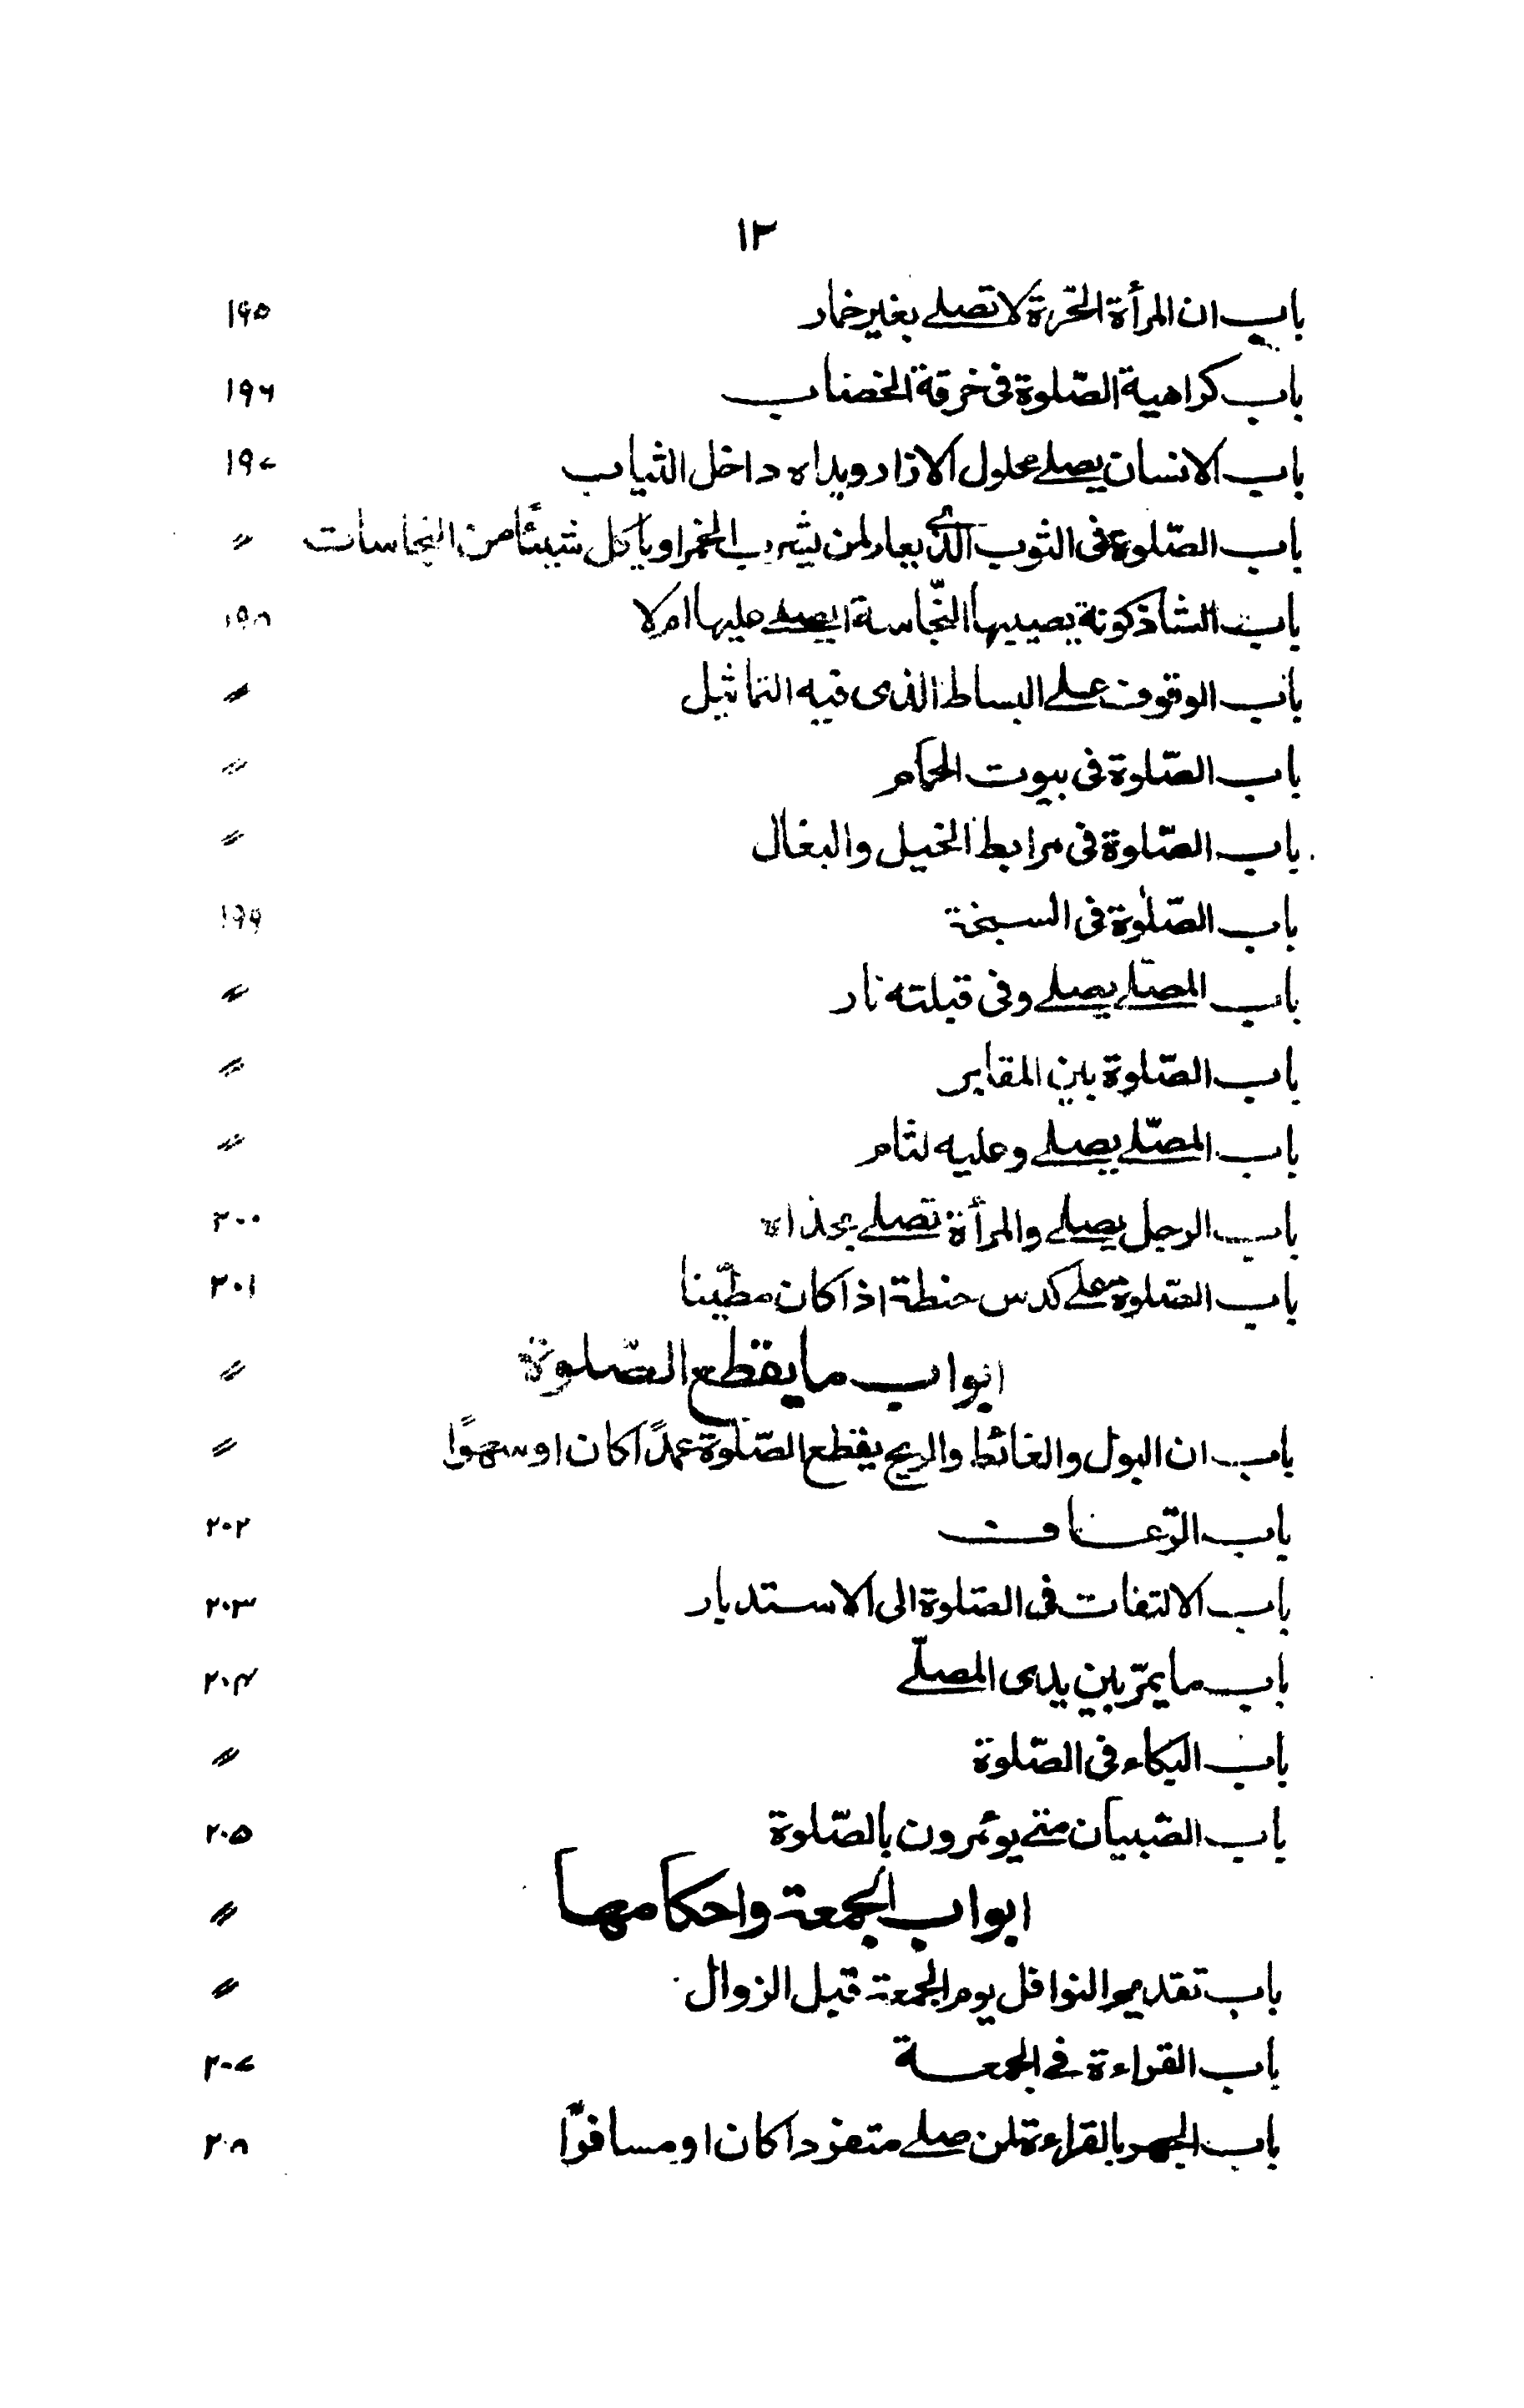 ١٣
باب ان المرأة الحرة لا تصلے بغير خمار ١٩٥
باب كراهية الصّلوة فى خرقة الخضاب ١٩٦
باب الانسان يصلے محلول الازار ويداه داخل الثياب ١٩٧
باب الصّلوة فى الثوب الذى يعار لمن يشرب الخمر او يأكل شيئًا من النجاسات ″
باب الشاذكونة يصيبها النّجاسة ايصلے عليها ام لا ١٩٨
باب الوقوف علے البساط الذى فيه التماثيل ″
باب الصّلوة فى بيوت الحمام ″
باب الصّلوة فى مرابط الخيل والبغال ″
باب الصّلوة فى السبخة ١٩٩
باب المصلّے يصلے وفى قبلته نار ″
باب الصّلوة بين المقابر ″
باب المصلّے يصلے وعليه لثام ″
باب الرجل يصلے والمرأة تصلے بحذاه ٢٠٠
باب الصّلوة علے كدس حنطة اذا كان مطيّنا ٢٠١
ابواب ما يقطع الصّلوة ″
باب ان البول والغائط والريح يقطع الصّلوة عمدًا كان او سهوًا ″
باب الرّعاف ٢٠٢
باب الالتفات فى الصّلوة الى الاستدبار ٢٠٣
باب ما يمرّ بين يدى المصلّے ٢٠۴
باب البكاء فى الصّلوة ″
باب الصّبيان متے يؤمرون بالصّلوة ٢٠۵
ابواب الجمعة واحكامها ″
باب تقديم النوافل يوم الجمعة قبل الزوال ″
باب القراءة فے الجمعة ٢٠٧
باب الجهر بالقراءة لمن صلے منفردا كان او مسافرًا ٢٠٨